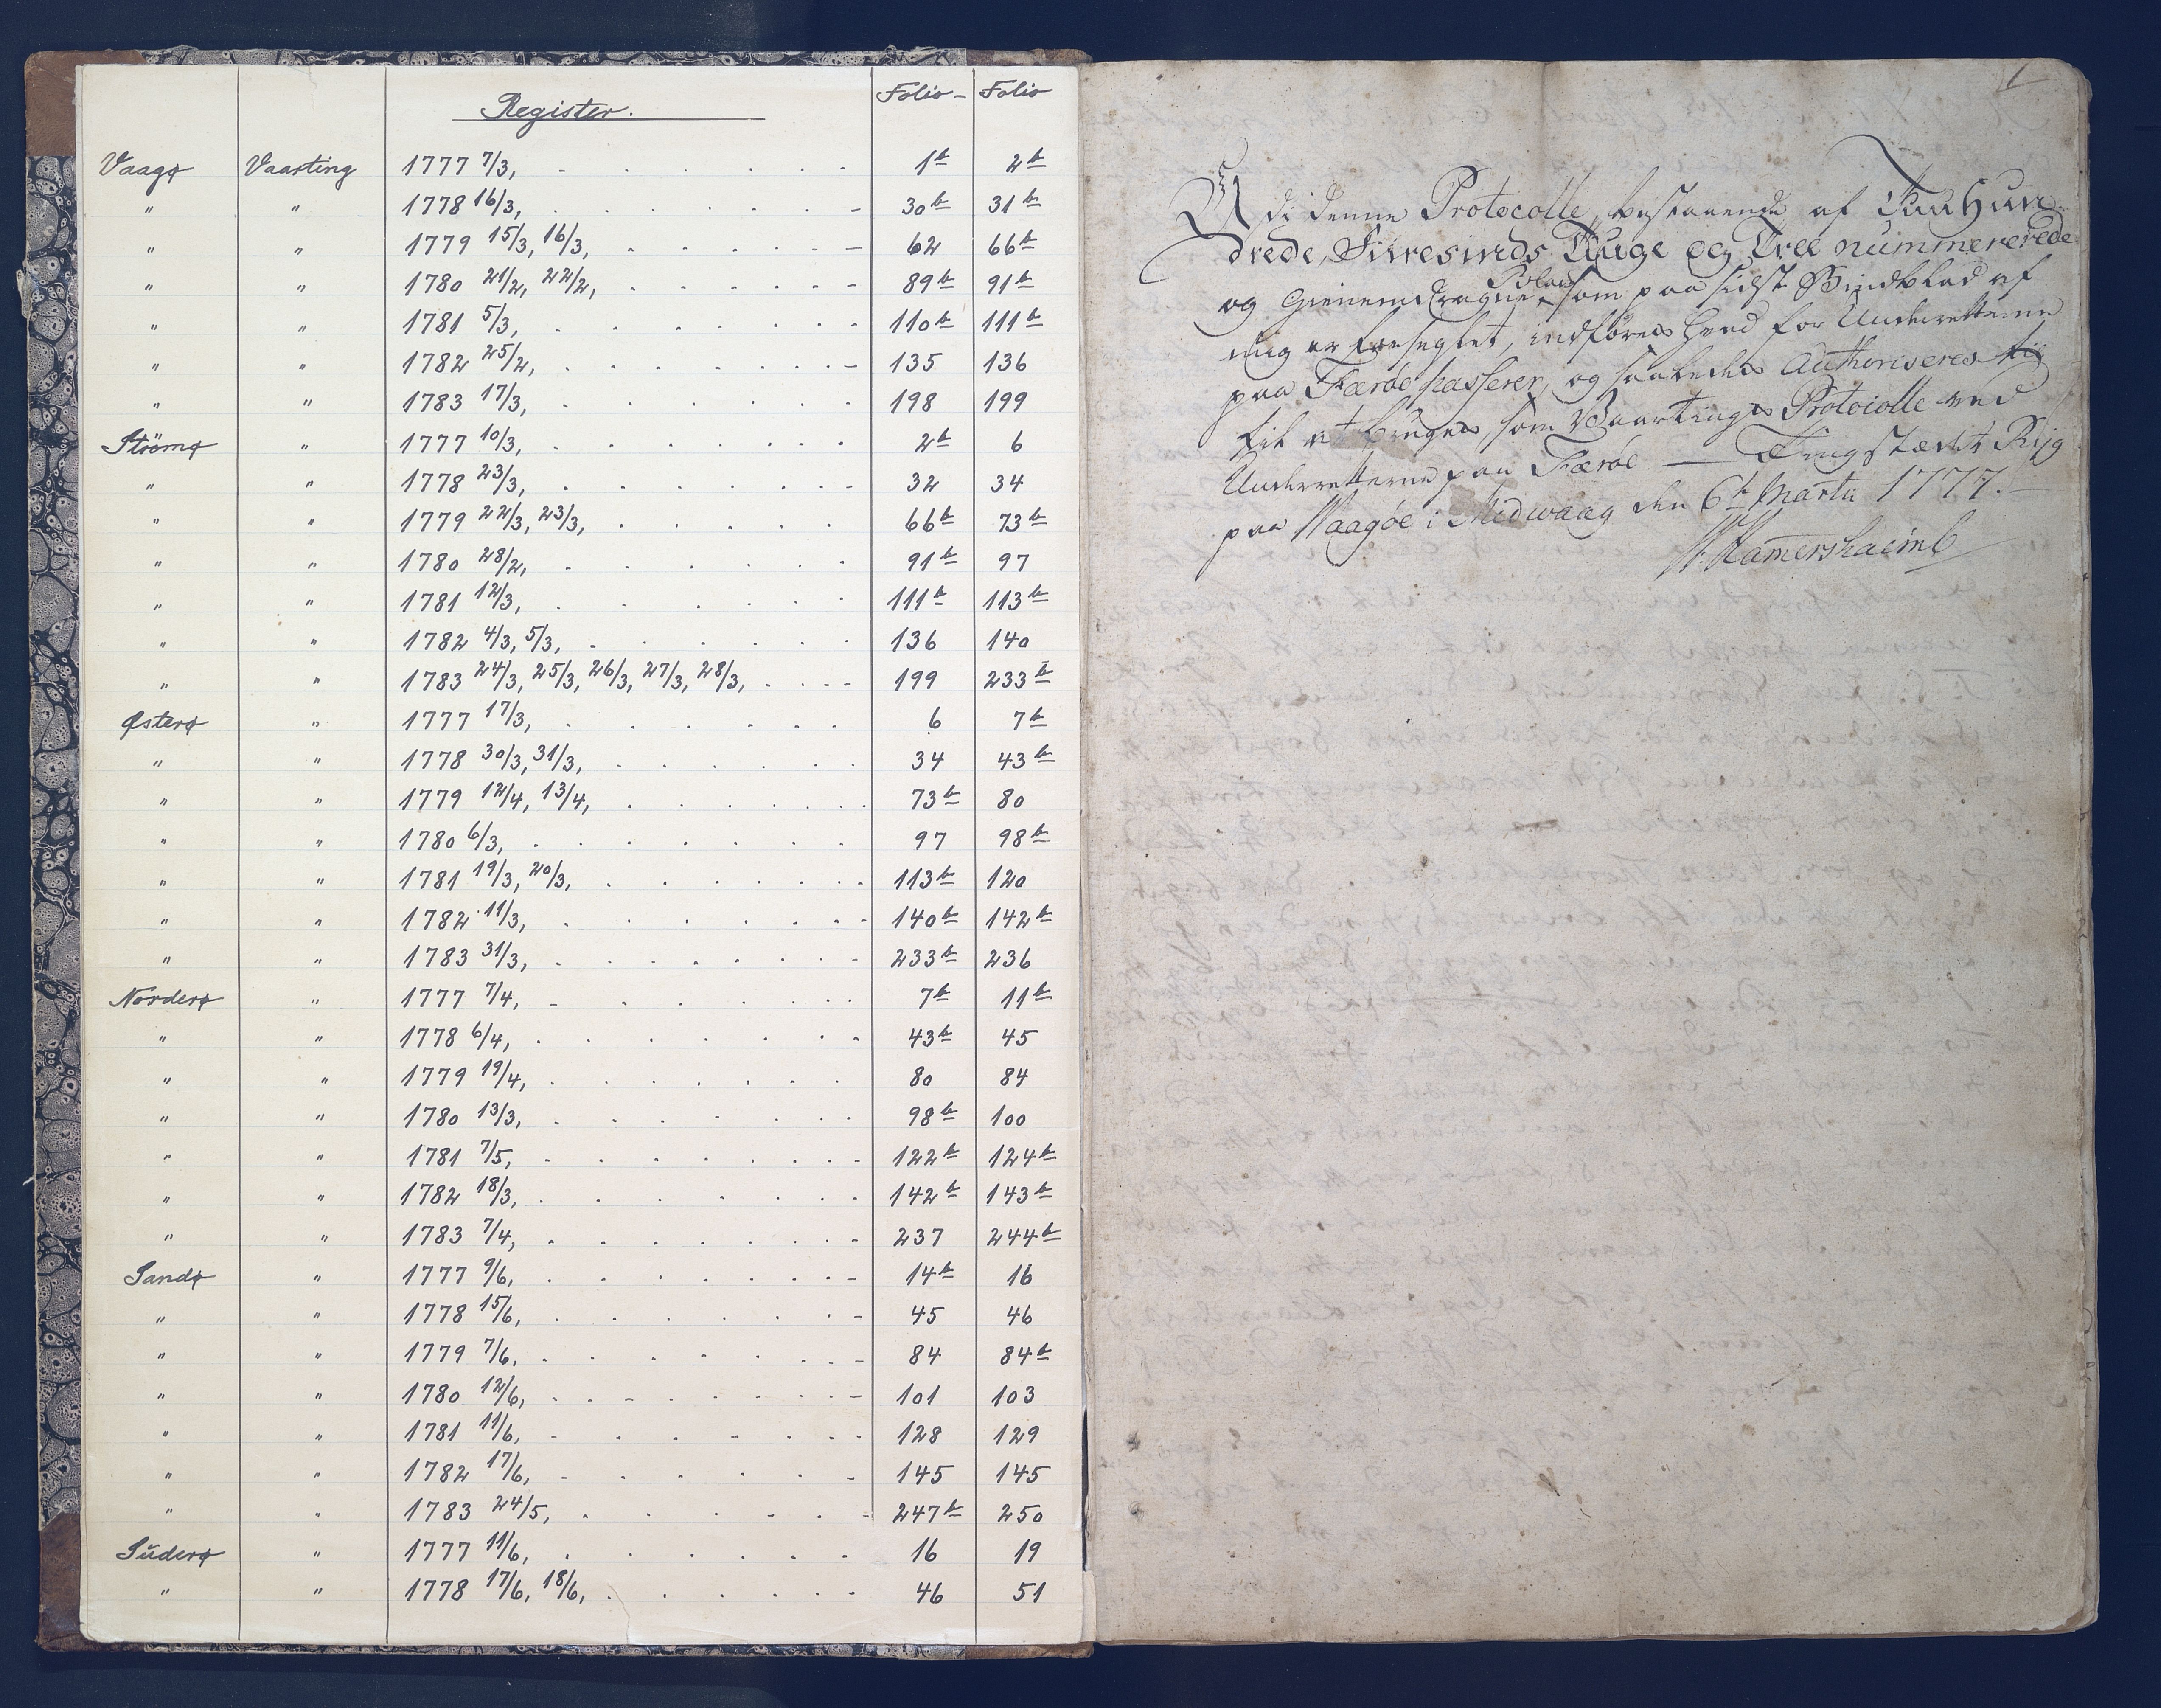 Register.
Folio - Folio
Vaagø Vaarting 1777 7/3, 1b 2b
" " 1778 16/3, 30b 31b
" " 1779 15/3, 16/3, 62 66b
" " 1780 21/2, 22/2, 89b 91b
" " 1781 5/3, 110b 111b
" " 1782 25/2, 135 136
" " 1783 17/3, 198 199
Strömø " 1777 10/3, 2b 6
" " 1778 23/3, 32 34
" " 1779 22/3, 23/3, 66b 73b
" " 1780 28/2, 91b 97
" " 1781 12/3, 111b 113b
" " 1782 4/3, 5/3, 136 140
" " 1783 24/3, 25/3, 26/3, 27/3, 28/3, 199 233b
Østerø " 1777 17/3, 6 7b
" " 1778 30/3, 31/3, 34 43b
" " 1779 12/4, 13/4, 73b 80
" " 1780 6/3, 97 98b
" " 1781 19/3, 20/3, 113b 120
" " 1782 11/3, 140b 142b
" " 1783 31/3, 233b 236
Norderø " 1777 7/4, 7b 11b
" " 1778 6/4, 43b 45
" " 1779 19/4, 80 84
" " 1780 13/3, 98b 100
" " 1781 7/5, 122b 124b
" " 1782 18/3, 142b 143b
" " 1783 7/4, 237 244b
Sandø " 1777 9/6, 14b 16
" " 1778 15/6, 45 46
" " 1779 7/6, 84 84b
" " 1780 12/6, 101 103
" " 1781 11/6, 128 129
" " 1782 17/6, 145 145
" " 1783 24/5, 247b 250
Süderø " 1777 11/6, 16 19
" " 1778 17/6, 18/6, 46 51
1
Udi denne Protocolle, bestaaende af Toe Hun-
drede, Fiiresinds Tiuge og Tree nummererede
og Gienemdragne Folier som paa sidst Bindblad af
mig er forseglet, indføres hvad for Underretterne
paa Færøe passerer, og saaledes Authoriseres
til at bruges, som Vaartings Protocolle ved
Underretterne paa Færøe — Tingstædet Ryg
paa Waagøe i Midwaag den 6t Martii 1777.
W. Hamershaimb